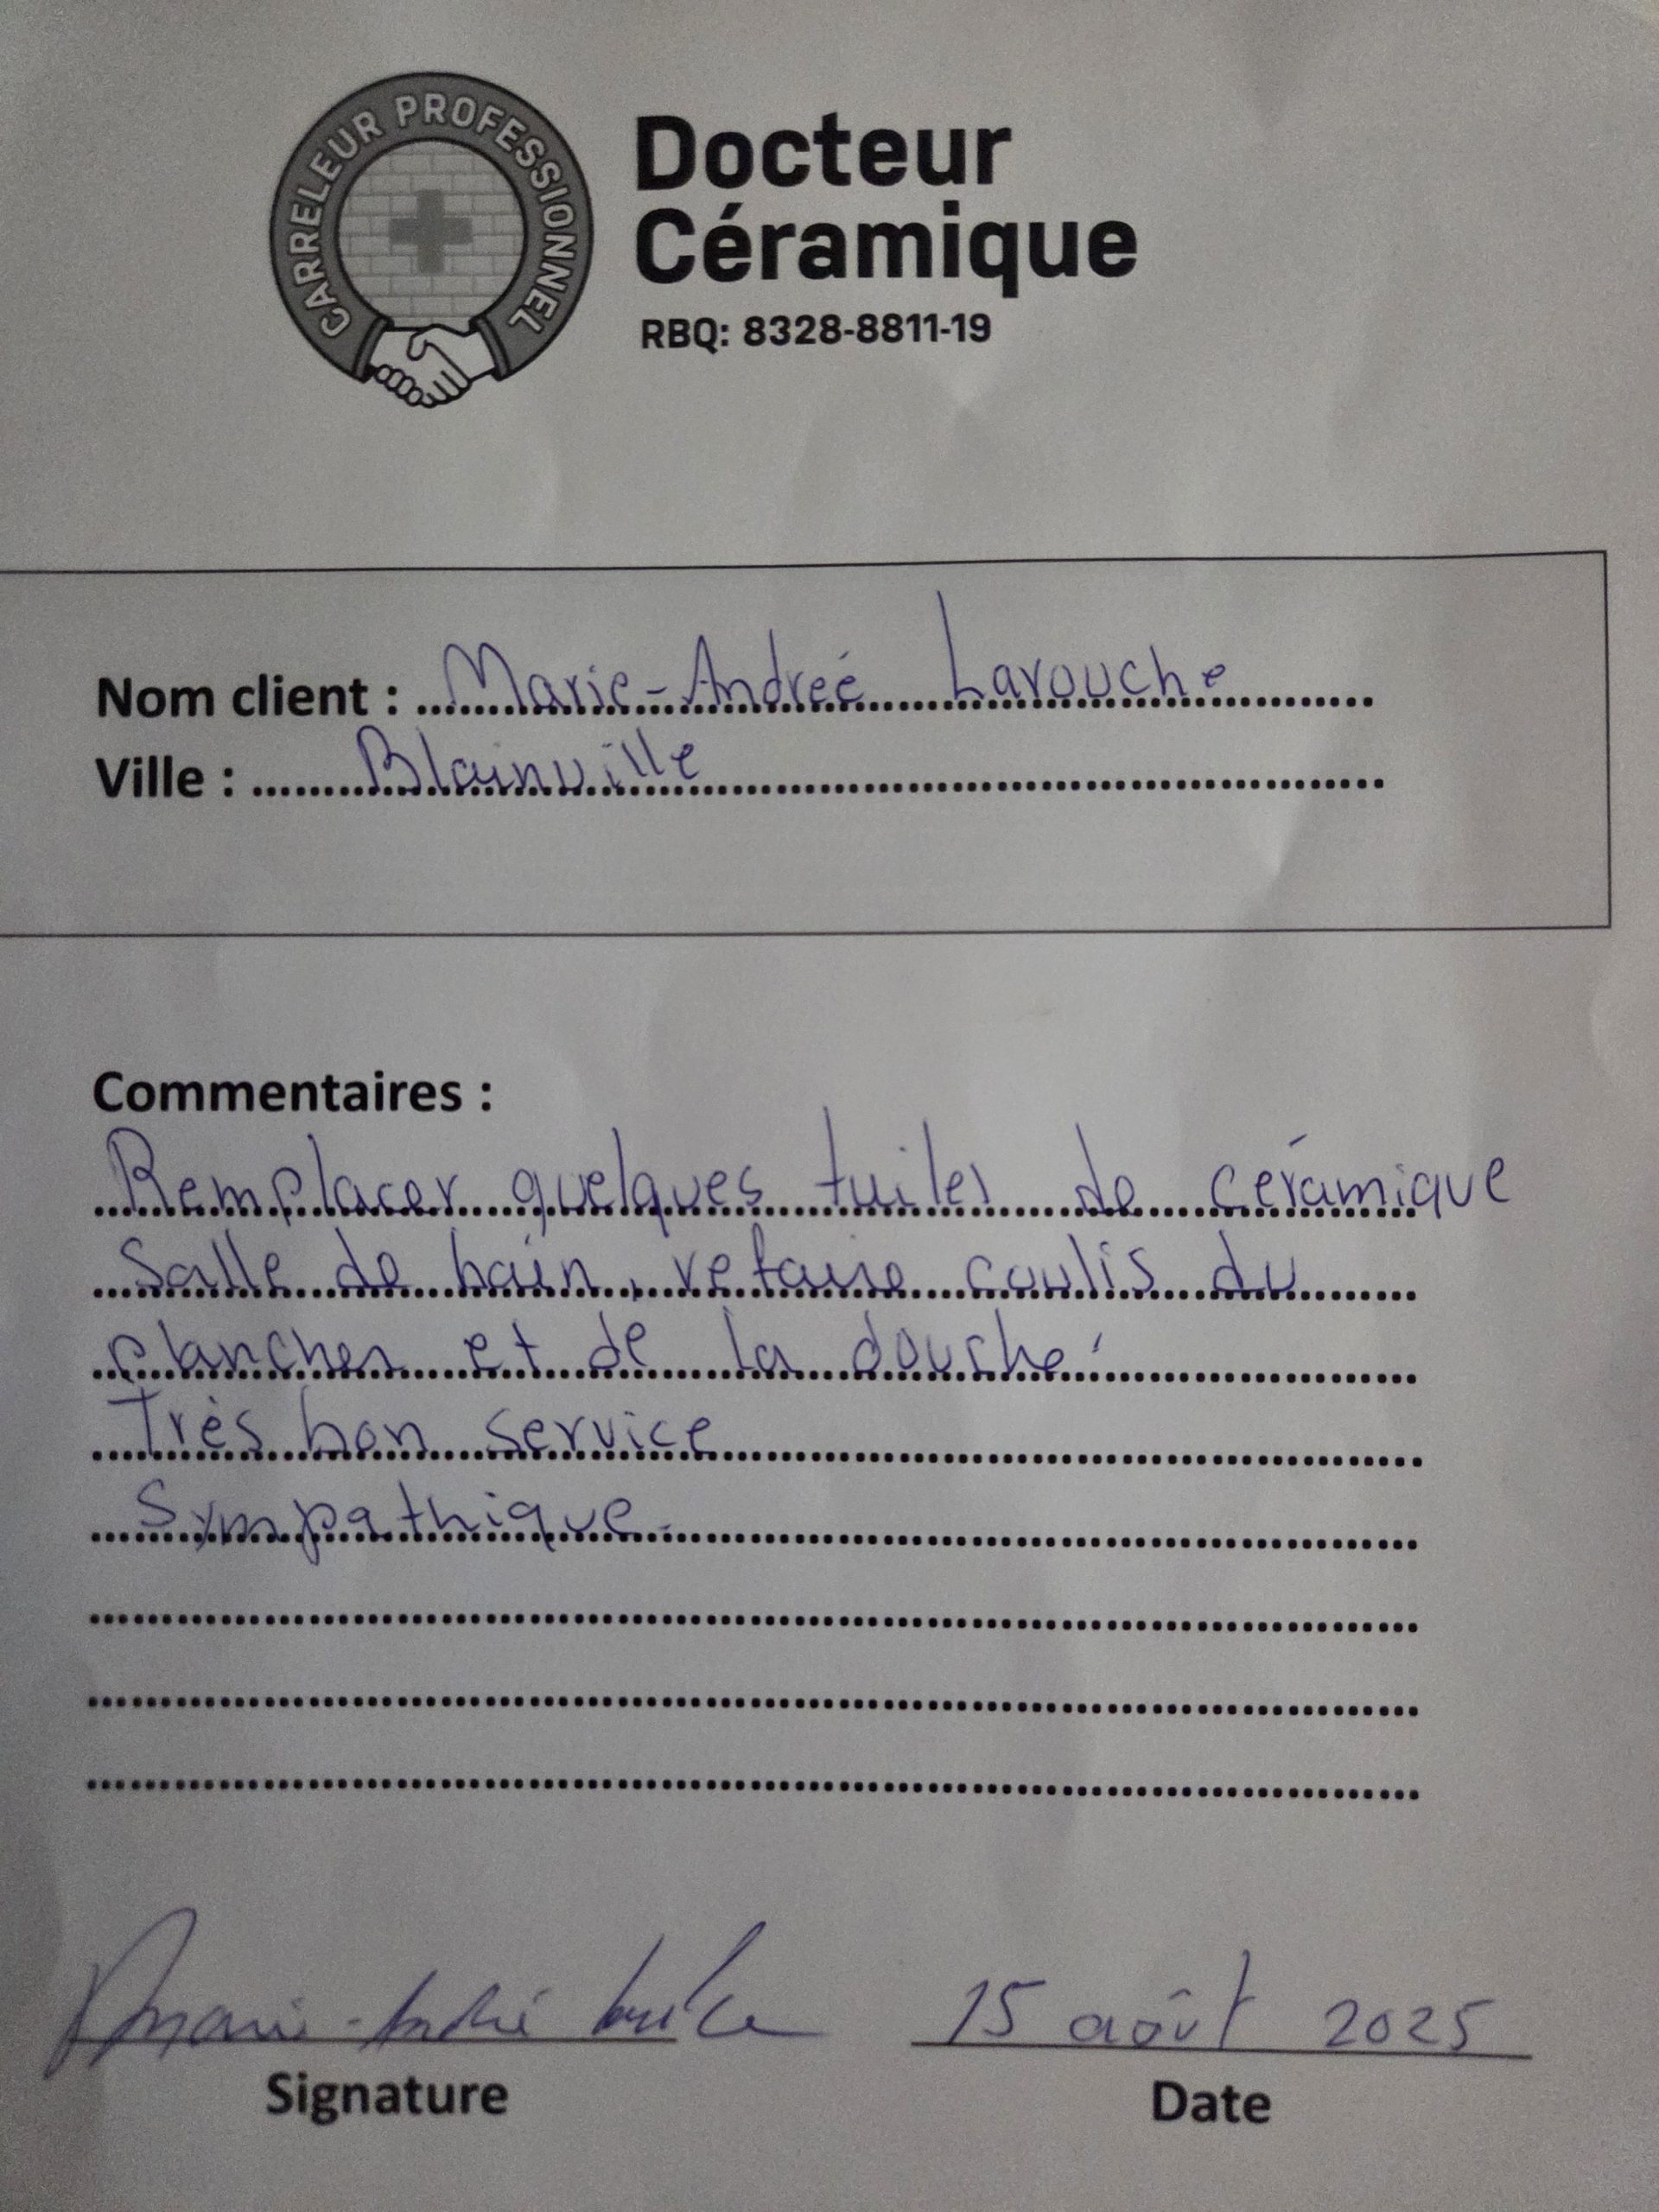 CARRELEUR PROFESSIONNEL
Docteur
Céramique
RBQ: 8328-8811-19
Nom client : Marie-Andreé Larouche
Ville : Blainville
Commentaires :
Remplacer quelques tuiles de céramique
Salle de bain, refaire coulis du
plancher et de la douche.
Très bon service
Sympathique.
Signature
15 août 2025
Date